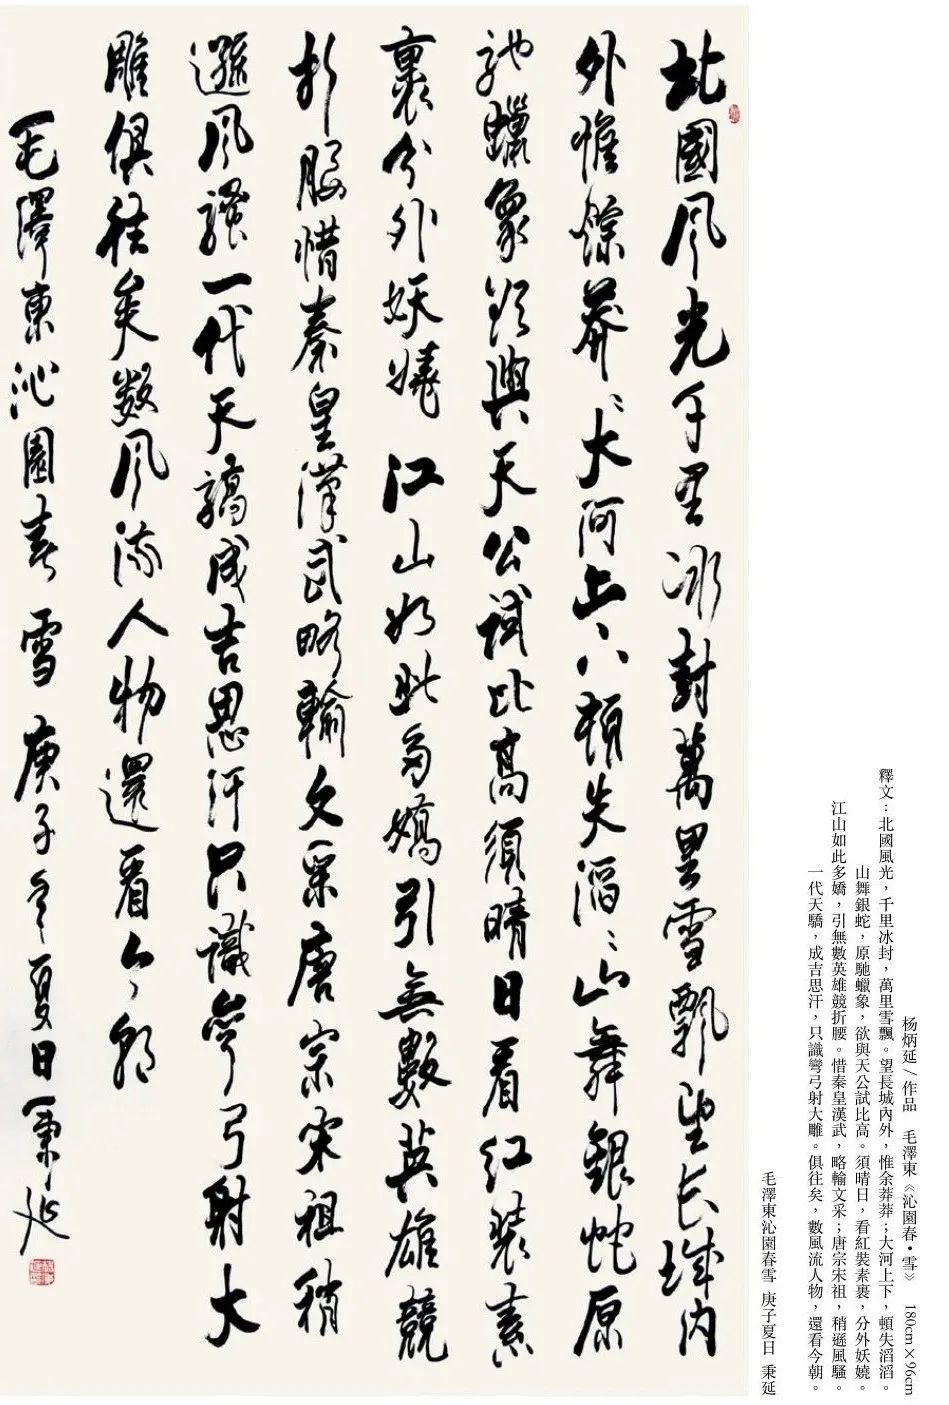 北國風光千里冰封萬里雪飄望長城内
外惟餘莽〻大河上下頓失滔〻山舞銀蛇原
馳蠟象欲與天公試比高須晴日看紅裝素
裹分外妖嬈江山如此多嬌引無數英雄競
折腰惜秦皇漢武略輸文采唐宗宋祖稍
遜風騷一代天驕成吉思汗只識彎弓射大
雕俱往矣數風流人物還看今朝
毛澤東沁園春雪 庚子年夏日 秉延
杨炳延 / 作品 毛澤東《沁園春·雪》 180cm×96cm
釋文：北國風光，千里冰封，萬里雪飄。望長城內外，惟余莽莽；大河上下，頓失滔滔。
山舞銀蛇，原馳蠟象，欲與天公試比高。須晴日，看紅裝素裹，分外妖嬈。
江山如此多嬌，引無數英雄競折腰。惜秦皇漢武，略輸文采；唐宗宋祖，稍遜風騷。
一代天驕，成吉思汗，只識彎弓射大雕。俱往矣，數風流人物，還看今朝。
毛澤東沁園春雪 庚子夏日 秉延